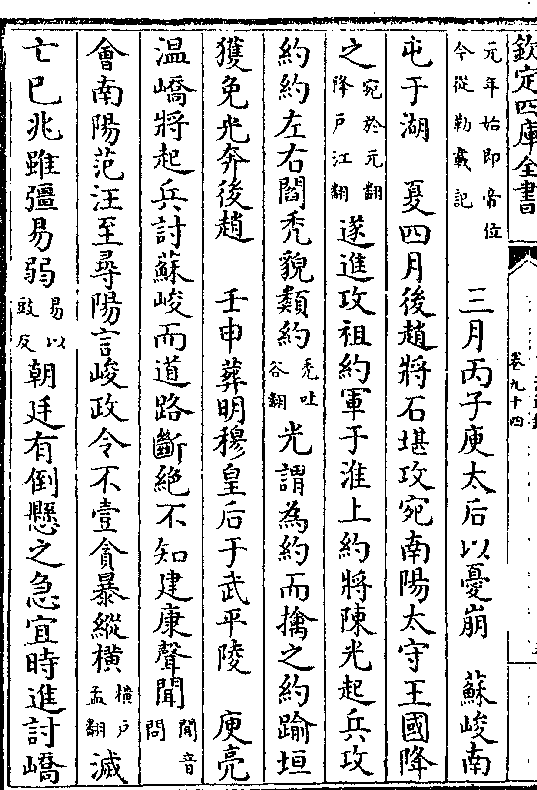 欽定四庫全書
卷九十四
元年始即帝位今從勒載記　三月丙子庾太后以憂崩　蘇峻南
屯于湖　夏四月後趙將石堪攻宛南陽太守王國降
之宛於元翻降戶江翻遂進攻祖約軍于淮上約將陳光起兵攻
約約左右閻禿貌類約禿吐谷翻光謂為約而擒之約踰垣
獲免光奔後趙　壬申葬明穆皇后于武平陵　庾亮
温嶠將起兵討蘇峻而道路斷絕不知建康聲聞聞音問
會南陽范汪至尋陽言峻政令不壹貪暴縱橫橫戶孟翻滅
亡已兆雖彊易弱易以豉反朝廷有倒懸之急宜時進討嶠